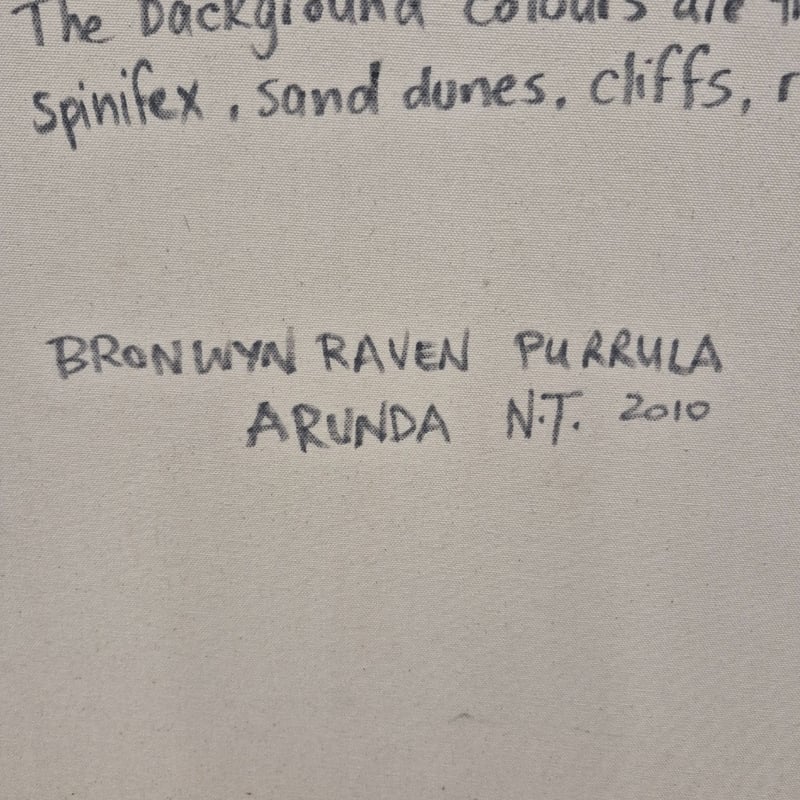 The background colours are
spinifex, sand dunes, cliffs,
BRONWYN RAVEN PURRULA
ARUNDA N.T. 2010